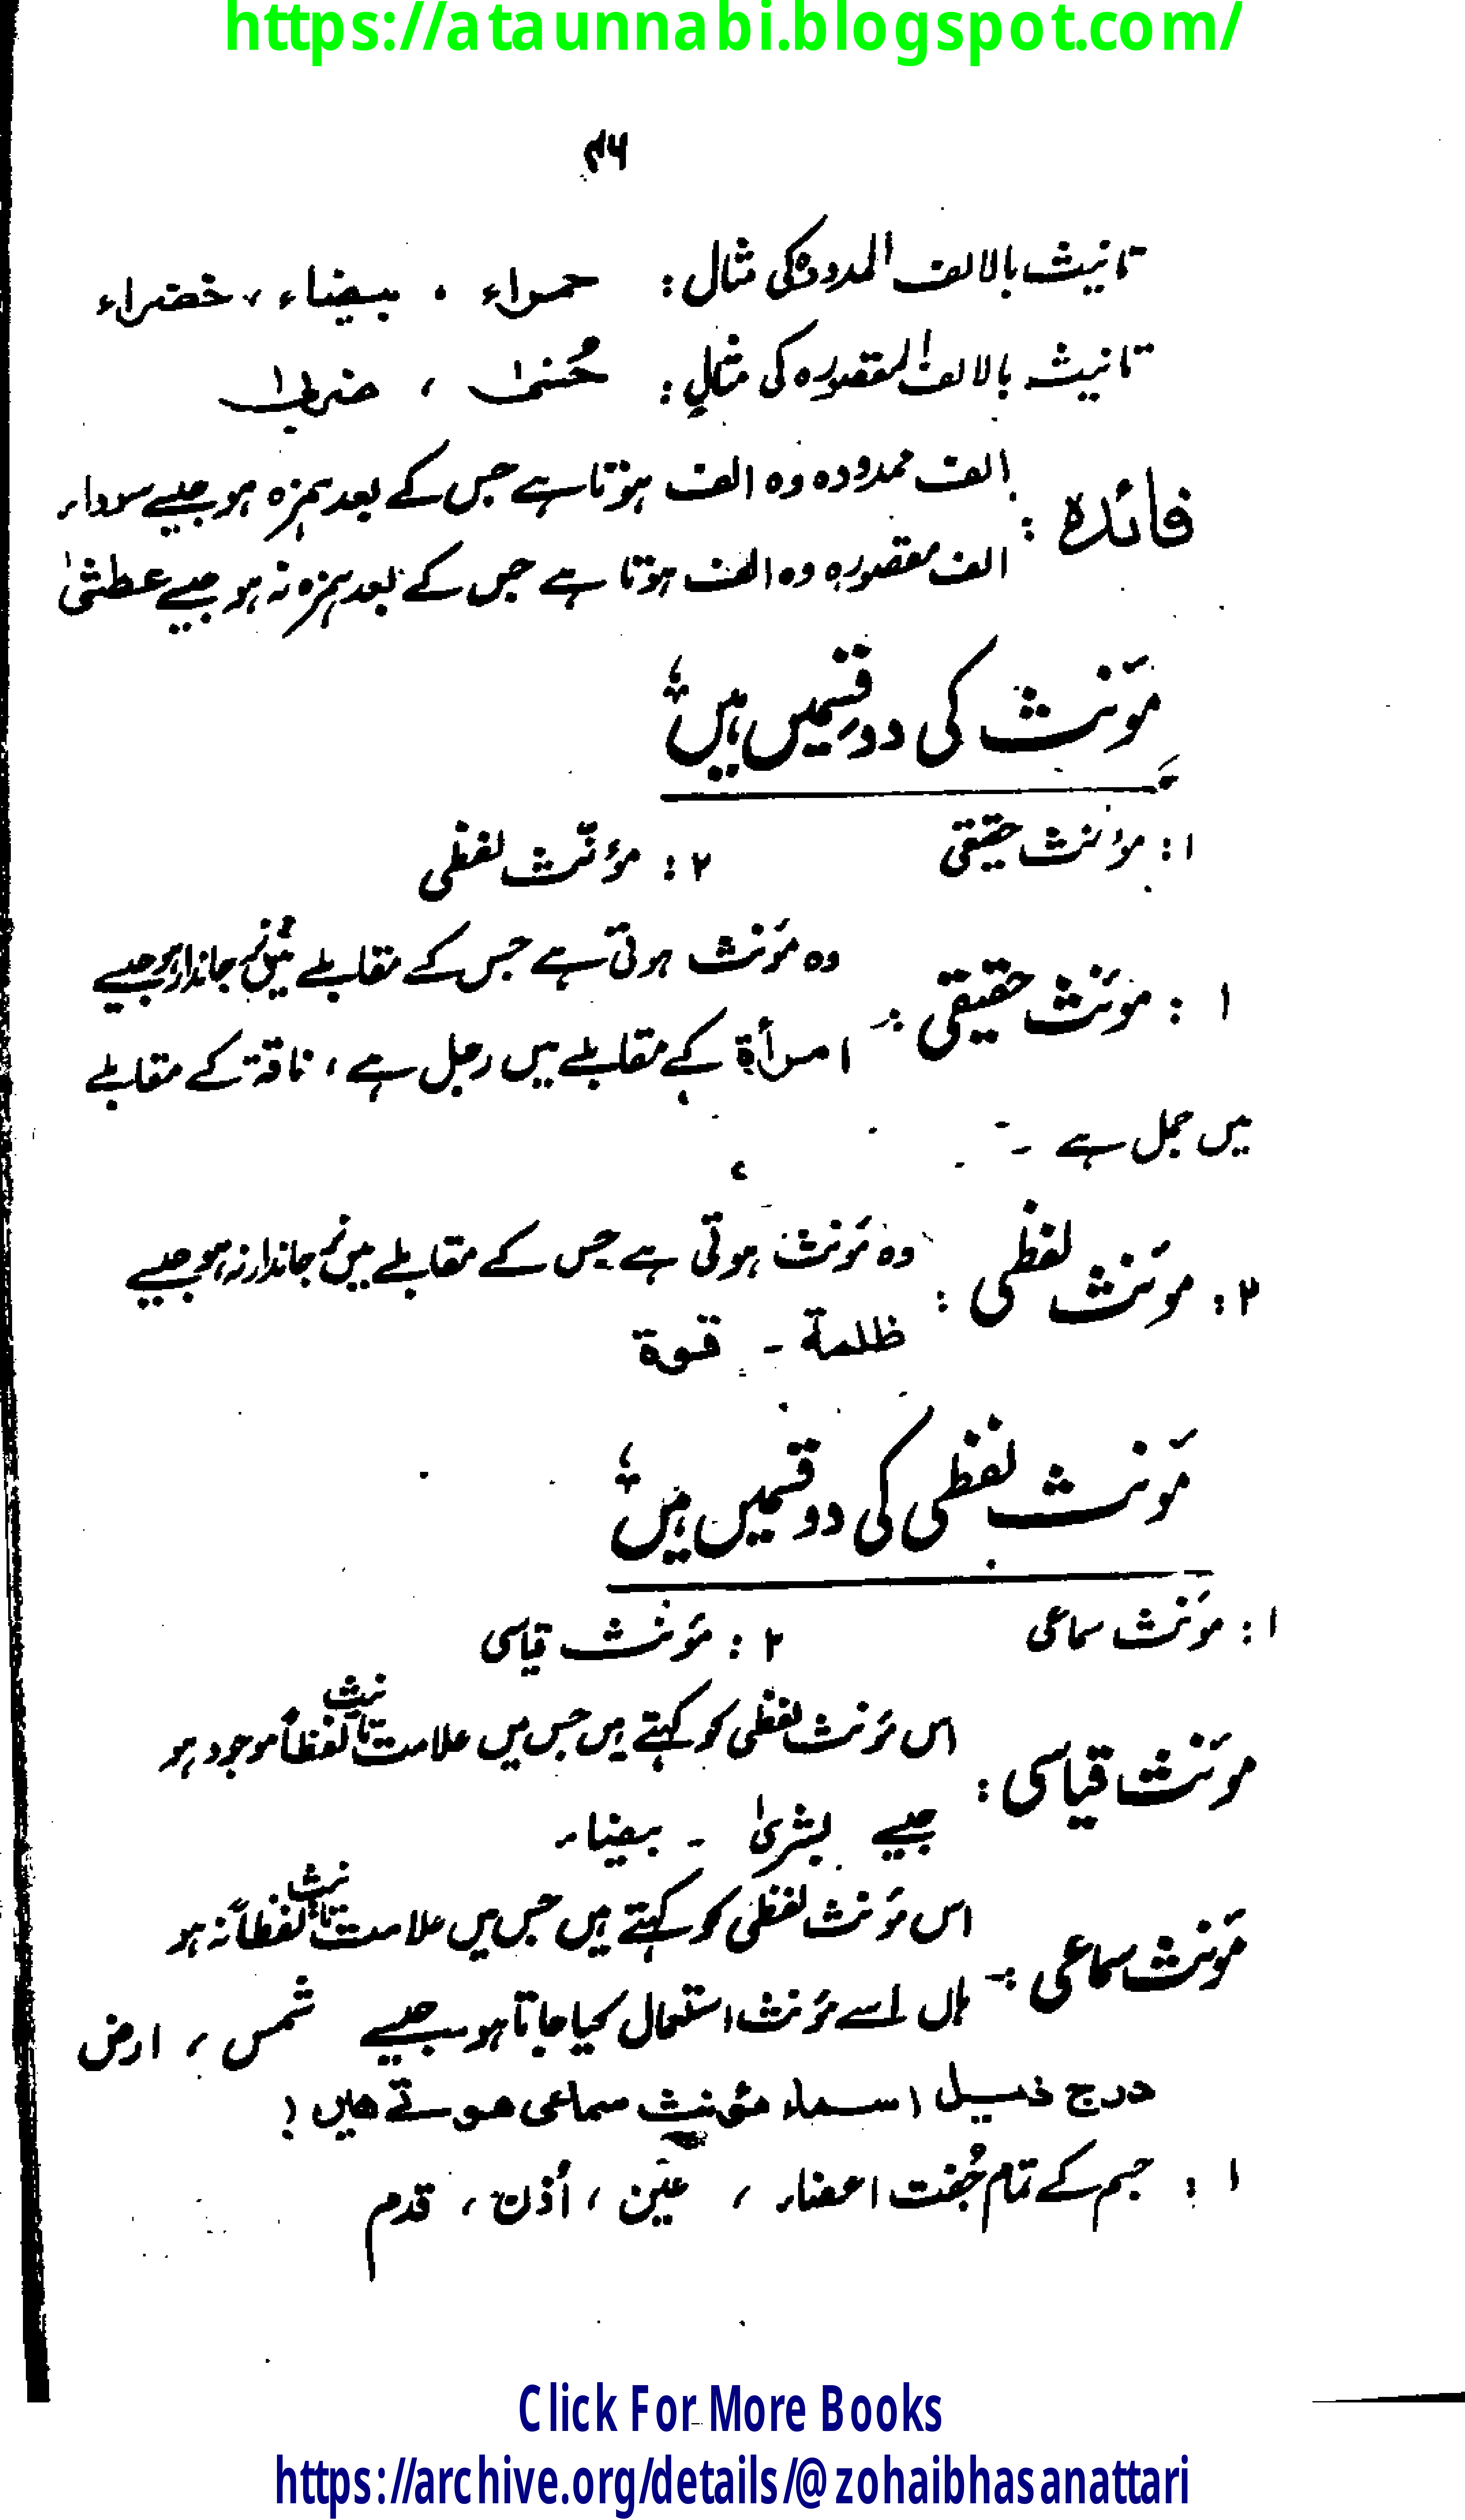 https://ataunnabi.blogspot.com/
۴۶
تانیث بالالف الممدودہ کی مثال : حمراء ، بیضاء ، خضراء
تانیث بالالف المقصورہ کی مثال : حُسنیٰ ،
فائدہ : الف ممدودہ وہ الف ہوتا ہے جس کے بعد ہمزہ ہو جیسے سوداء
الف مقصورہ وہ الف ہوتا ہے جس کے بعد ہمزہ نہ ہو جیسے عطشیٰ
مؤنث کی دو قسمیں ہیں :
۱ : مؤنث حقیقی ۲ : مؤنث لفظی
۱ : مؤنث حقیقی : وہ مؤنث ہوتی ہے جس کے مقابلے میں نر جاندار ہو جیسے
امرأة کے مقابلے میں رجل ہے ، ناقة کے مقابلے
میں جمل ہے ۔
۲ : مؤنث لفظی : وہ مؤنث ہوتی ہے جس کے مقابلے میں نر جاندار نہ ہو جیسے
ظلمة ۔ قوة
مؤنث لفظی کی دو قسمیں ہیں :
۱ : مؤنث سماعی ۲ : مؤنث قیاسی
مؤنث قیاسی : اس مؤنث لفظی کو کہتے ہیں جس میں علامت تانیث لفظاً موجود ہو
جیسے بشریٰ ۔ بیضاء
مؤنث سماعی : اس مؤنث لفظی کو کہتے ہیں جس میں علامت تانیث لفظاً نہ ہو
ہاں اسے مؤنث استعمال کیا جاتا ہو جیسے شمس ، ارض
درج ذیل اسماء مؤنث سماعی ہوتے ہیں :
۱ : جسم کے تمام جُفت اعضاء ، عَین ، اُذن ، قدم
Click For More Books
https://archive.org/details/@zohaibhasanattari